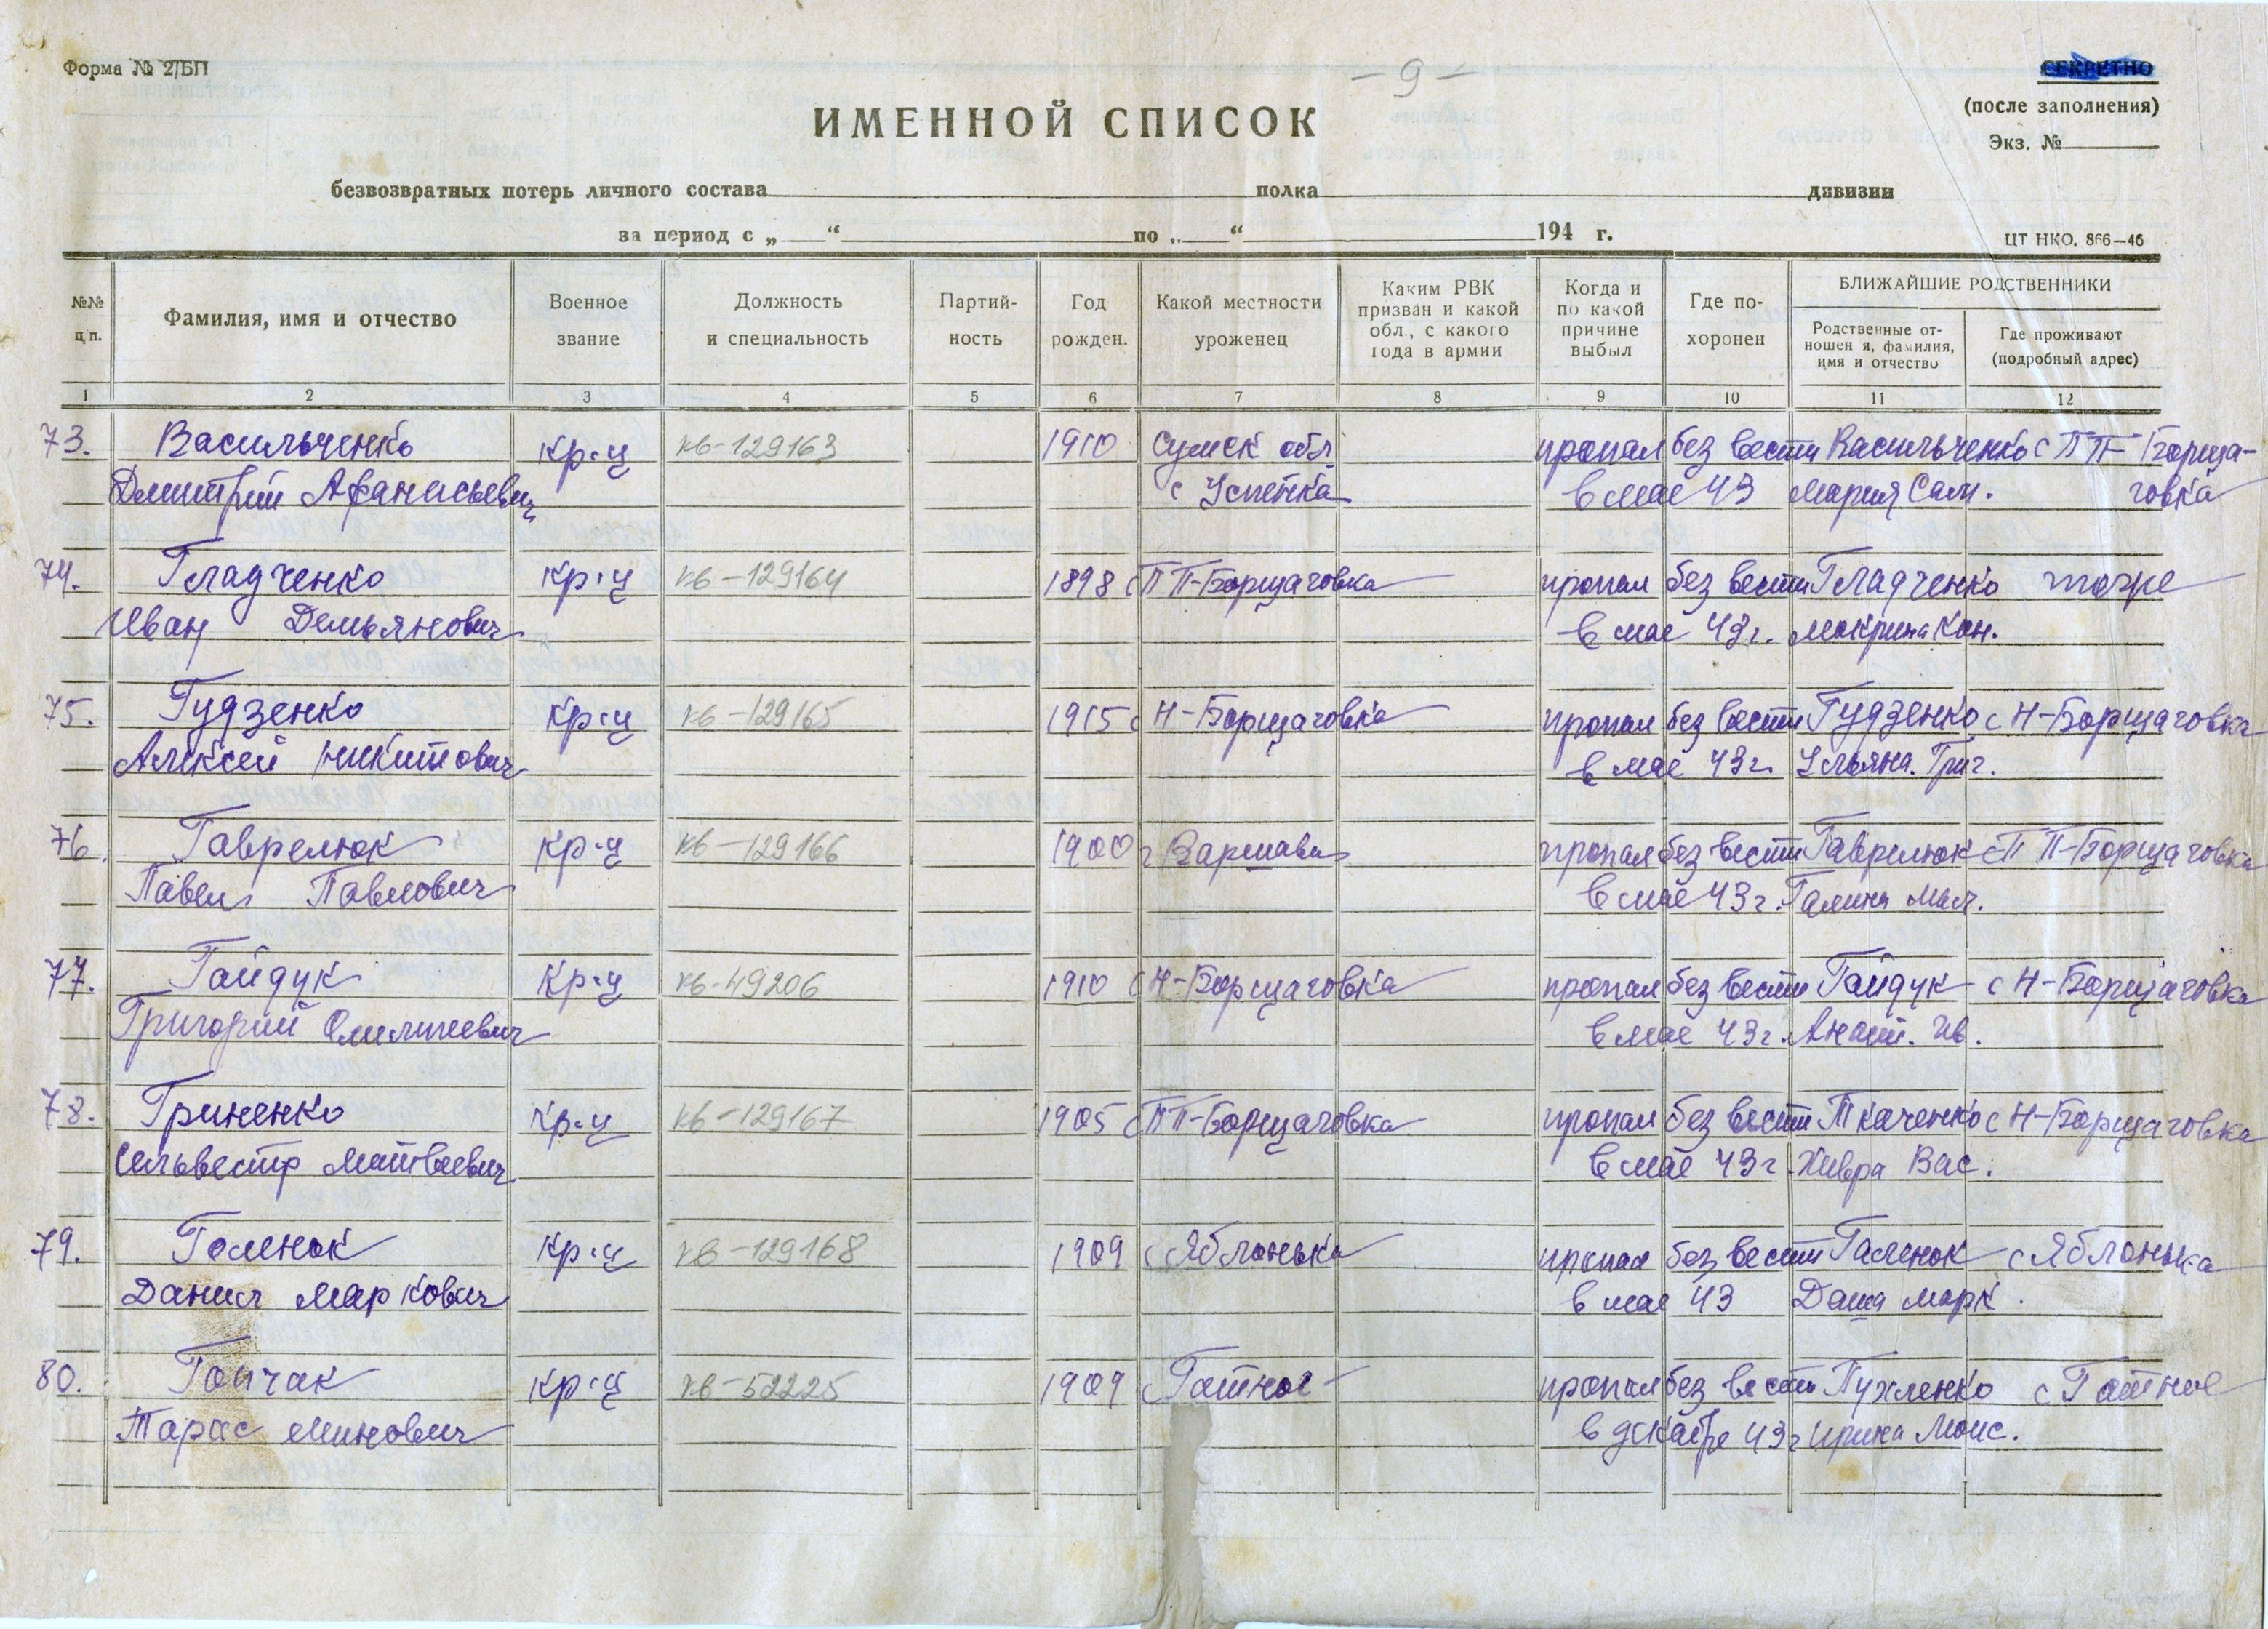 Форма № 2/БП
- 9 -
СЕКРЕТНО
(после заполнения)
Экз. №
ИМЕННОЙ СПИСОК
безвозвратных потерь личного состава полка дивизии
за период с „ “ по „ “ 194 г.
ЦТ НКО. 866—46
№№ п.п.
Фамилия, имя и отчество
Военное звание
Должность и специальность
Партий- ность
Год рожден.
Какой местности уроженец
Каким РВК призван и какой обл., с какого года в армии
Когда и по какой причине выбыл
Где по- хоронен
БЛИЖАЙШИЕ РОДСТВЕННИКИ
Родственные от- ношен я, фамилия, имя и отчество
Где проживают (подробный адрес)
1 2 3 4 5 6 7 8 9 10 11 12
73. Васильченко кр-ц кв-129163 1910 Сумск обл пропал без вести Васильченко с ПП-Борща-
Дмитрий Афанасьевич с Успенка в мае 43 Мария Сам. говка
74. Гладченко кр-ц кв-129164 1898 с ПП-Борщаговка пропал без вести Гладченко тоже
Иван Демьянович в мае 43г. Мокрина Кон.
75. Гудзенко кр-ц кв-129165 1915 с Н-Борщаговка пропал без вести Гудзенко с Н-Борщаговка
Алексей Никитович в мае 43г. Ульяна Григ.
76. Гаврелюк кр-ц кв-129166 1900 г Варшава пропал без вести Гаврелюк с ПП-Борщаговка
Павел Павлович в мае 43г. Галина
77. Гайдук кр-ц кв-49206 1910 с Н-Борщаговка пропал без вести Гайдук с Н-Борщаговка
Григорий в мае 43г. Ив.
78. Гриненко кр-ц кв-129167 1905 с ПП-Борщаговка пропал без вести Ткаченко с Н-Борщаговка
Сельвестр Матвеевич в мае 43г. Хивря Вас.
79. Голенок кр-ц кв-129168 1909 с Яблонька пропал без вести Галенок с Яблонька
Данил Маркович в мае 43 Даша Марк.
80. кр-ц кв-52225 1909 с Гатное пропал без вести Пухленко с Гатное
Тарас Минович в декабре 43г Ирина Моис.